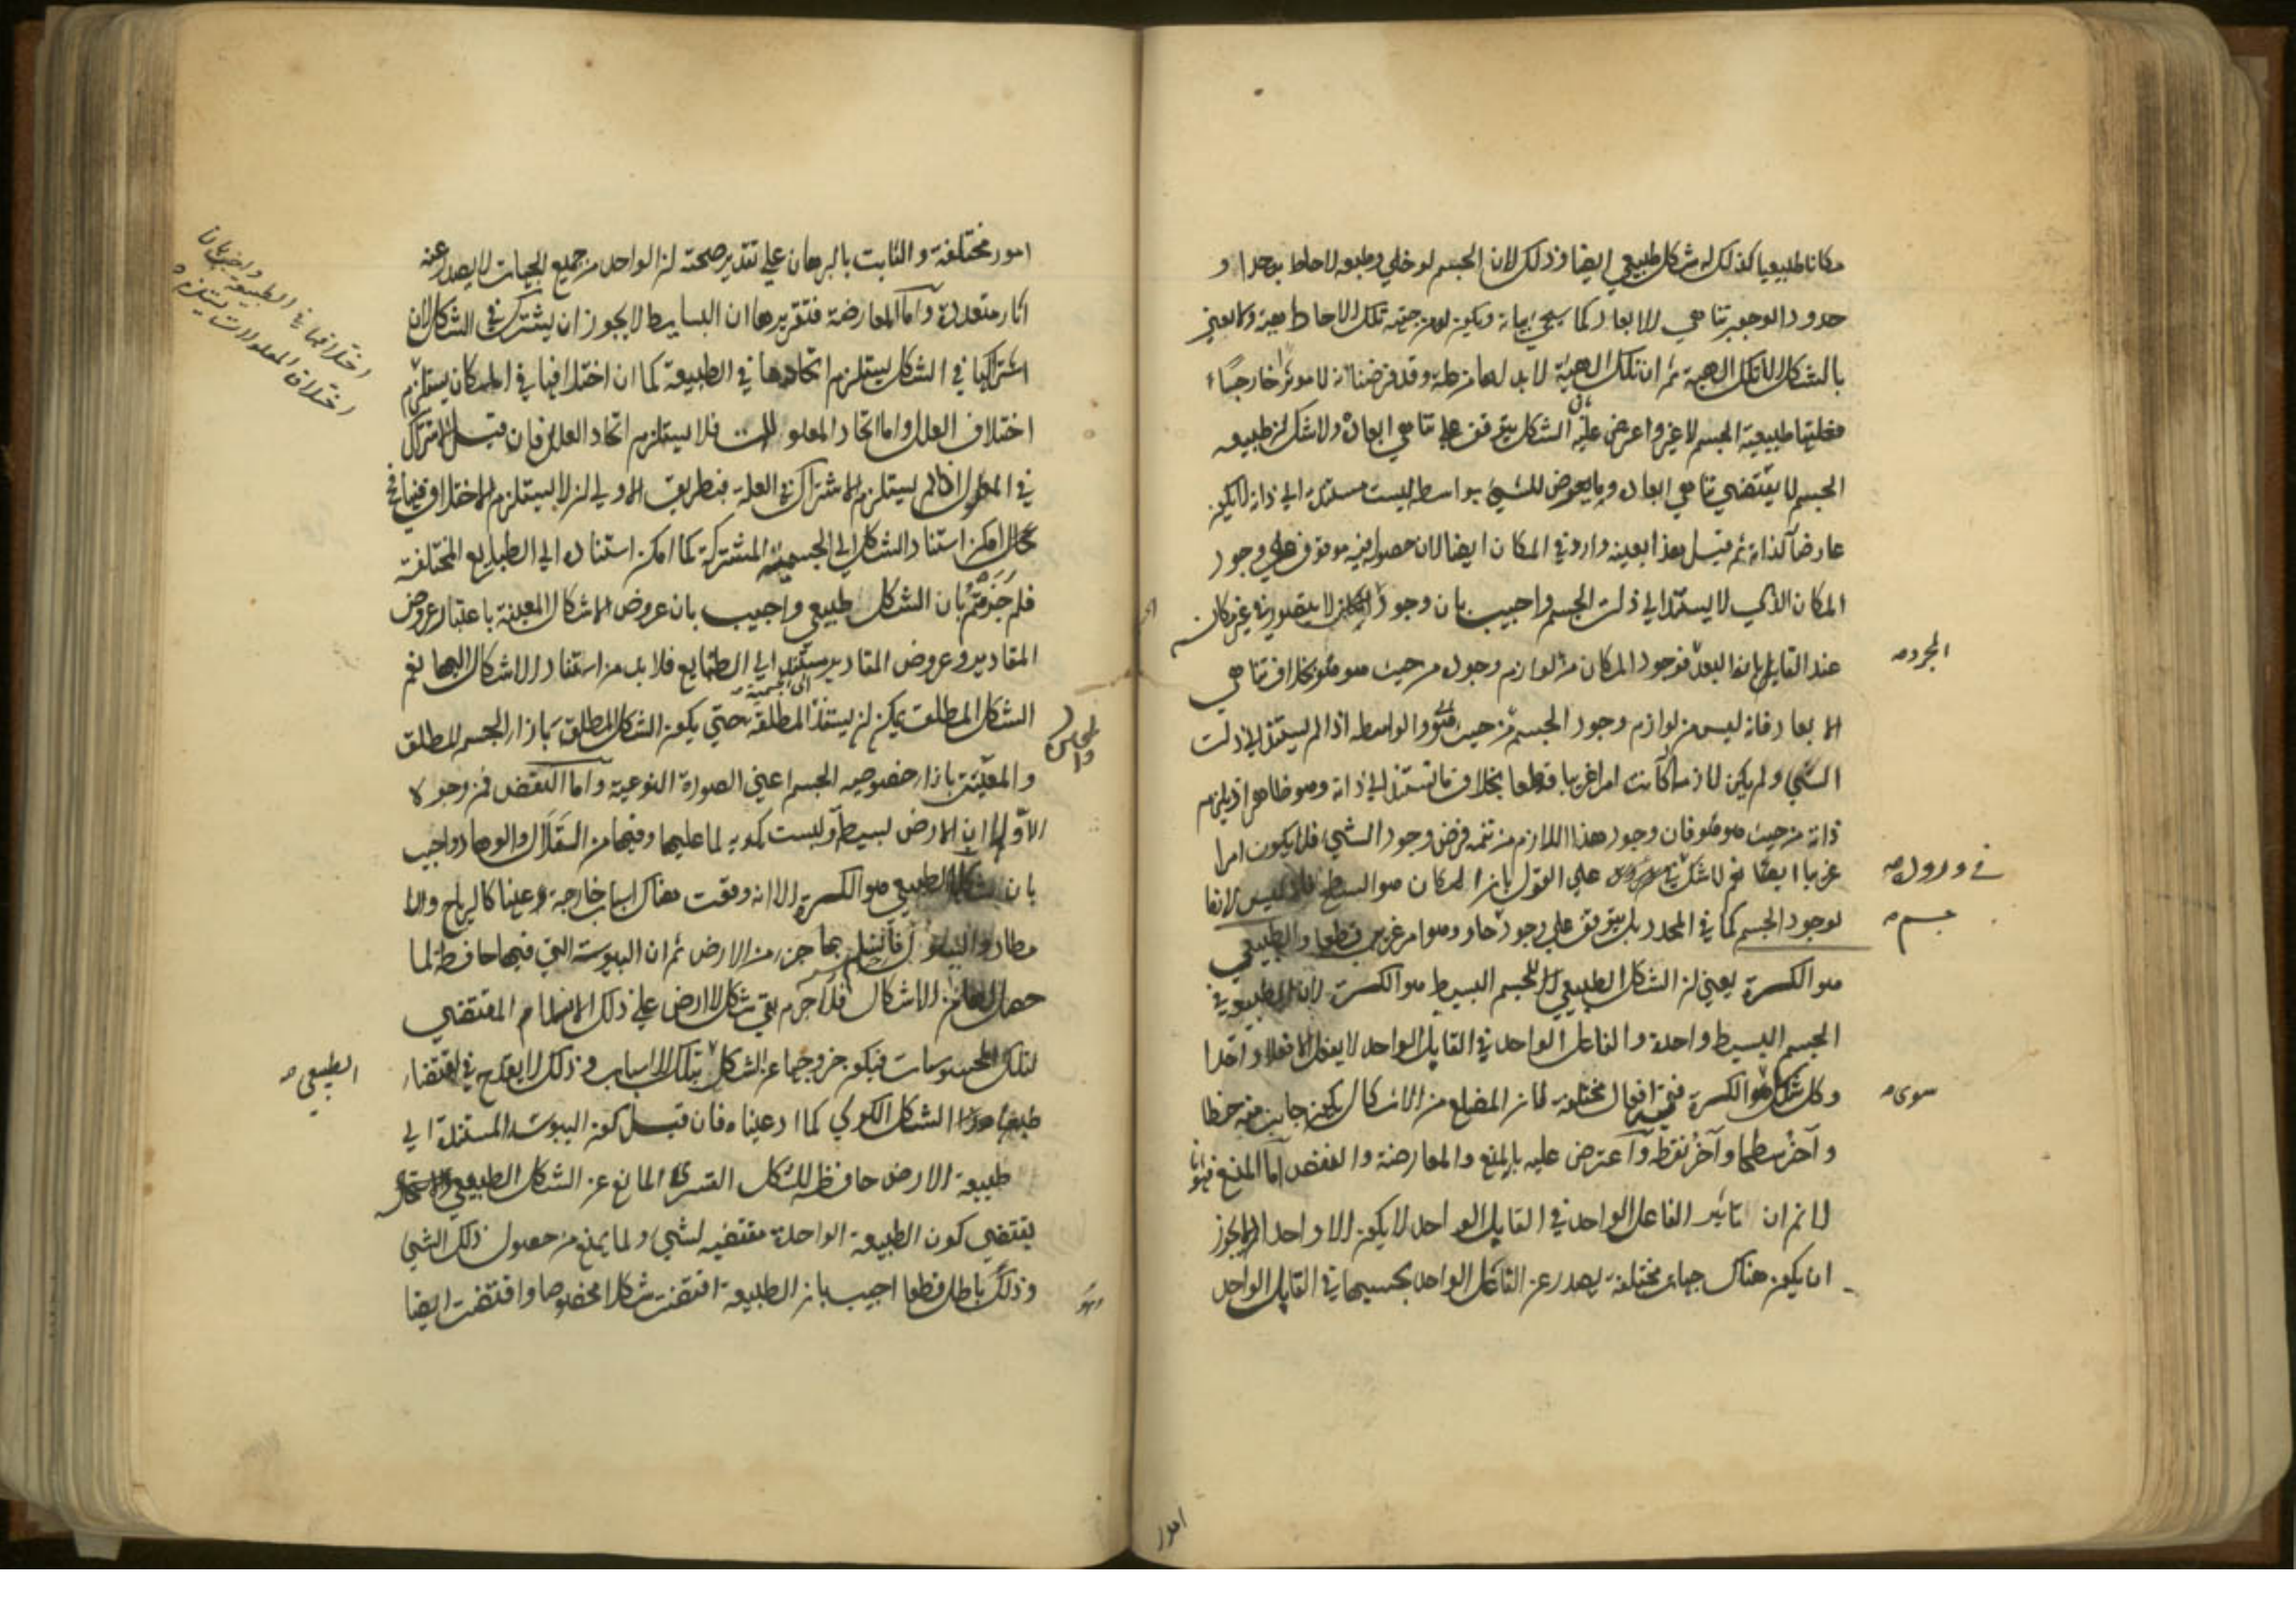 مكانا طبيعيا كذلك له شكل طبيعي ايضا وذلك لان الجسم لو خلي وطبعه لاحاط به حد او
حدود لوجوب تناهي الابعاد كما سيجئ بيانه ويكون له من جهة تلك الاحاطة هيئة ولا نعني
بالشكل الا تلك الهيئة ثم ان تلك الهيئة لابد لها من علة وقد فرضنا ان لا موثر خارجيا
فعلتها طبيعة الجسم لا غير واعترض عليه بان الشكل يتوقف على تناهي ابعاده ولا شك ان طبيعة
الجسم لا يقتضي تناهي ابعاده وما يعرض للشئ بواسطة ليست مستندة الى ذاته لا يكون
عارضا لذاته ثم قيل هذا بعينه وارد في المكان ايضا لان حصوله فيه موقوف على وجود
المكان الذي لا يستند الى ذات الجسم واجيب بان وجود الجسم لا يتصور في غير مكان
عند القايل بانه البعد فوجود المكان من لوازم وجوده من حيث هو هو بخلاف تناهي
المجرد صح
الابعاد فانه ليس من لوازم وجود الجسم من حيث هو هو والواسطة اذا لم يستند الى ذات
الشئ ولم يكن لازمة كانت امرا غريبا قطعا بخلاف ما تستند الى ذاته وهو ظاهر او يلزم
ذاته من حيث هو هو فان وجود هذا اللازم من تتمة فرض وجود الشئ فلا يكون امرا
غريبا ايضا نعم لا شك في وروده على القول بان المكان هو السطح فانه ليس لازما
في وروده صح
لوجود الجسم كما في المحدد بل يتوقف على وجود حاو وهو امر غريب قطعا والطبيعي
جسم صح
هو الكرة يعني ان الشكل الطبيعي للجسم البسيط هو الكرة لان الطبيعة في
الجسم البسيط واحدة والفاعل الواحد في القابل الواحد لا يفعل الا فعلا واحدا
وكل شكل سوى الكرة ففيه افعال مختلفة فان المضلع من الاشكال يكون جانب منه خطا
سوى صح
وآخر سطحا وآخر نقطة واعترض عليه بالمنع والمعارضة والنقض اما المنع فهو انا
لا نم ان تاثير الفاعل الواحد في القابل الواحد لا يكون الا واحدا لم لا يجوز
ان يكون هناك جهات مختلفة يصدر عن الفاعل الواحد بحسبها في القابل الواحد
امور
امور مختلفة والثابت بالبرهان على تقدير صحته ان الواحد من جميع الجهات لا يصدر عنه
آثار متعددة واما المعارضة فتقريرها ان البسايط لا يجوز ان يشترك في الشكل لان
اشتراكها في الشكل يستلزم اتحادها في الطبيعة كما ان اختلافها في المكان يستلزم
اختلافها في الطبيعة واجيب بان
اختلاف المعلولات يستلزم
اختلاف العلل واما اتحاد المعلولات فلا يستلزم اتحاد العلل فان قيل الاشتراك
في المعلول اذا لم يستلزم الاشتراك في العلة فبطريق الاولى ان لا يستلزم الاختلاف فيها فح
كما امكن استناد الشكل الى الجسمية المشتركة كما امكن استناده الى الطبايع المختلفة
فلم جزمتم بان الشكل طبيعي واجيب بان عروض الاشكال المعينة باعتبار عروض
المقادير وعروض المقادير مستند الى الطبايع فلابد من استناد الاشكال اليها نعم
الشكل المطلق يمكن ان يستند الى الجسمية المطلقة حتى يكون الشكل المطلق بازاء الجسم المطلق
والمعينة بازاء خصوصية الجسم اعني الصورة النوعية واما النقض فمن وجوه
الاول ان الارض بسيطة وليست كروية لما عليها وفيها من التلال والوهاد واجيب
بان شكلها الطبيعي هو الكرة الا انه وقعت هناك اسباب خارجة عنها كالرياح والا
مطار والسيول فانثلم بها جزء من الارض ثم ان اليبوسة التي فيها حافظة لما
حصل لها من الاشكال فلا جرم بقي شكل الارض على ذلك الانثلام المقتضي
لتلك المحسوسات فيكون خروجها عن الشكل الطبيعي بتلك الاسباب وذلك لا يقدح في اقتضاء
الطبيعي صح
طبعها هذا الشكل الكري كما ادعيناه فان قيل كون اليبوسة المستندة الى
طبيعة الارض حافظة للشكل القسري المانع عن الشكل الطبيعي
يقتضي كون الطبيعة الواحدة مقتضيه لشئ ولما يمنع من حصول ذلك الشئ
وذلك باطل قطعا اجيب بان الطبيعة اقتضت شكلا مخصوصا واقتضت ايضا